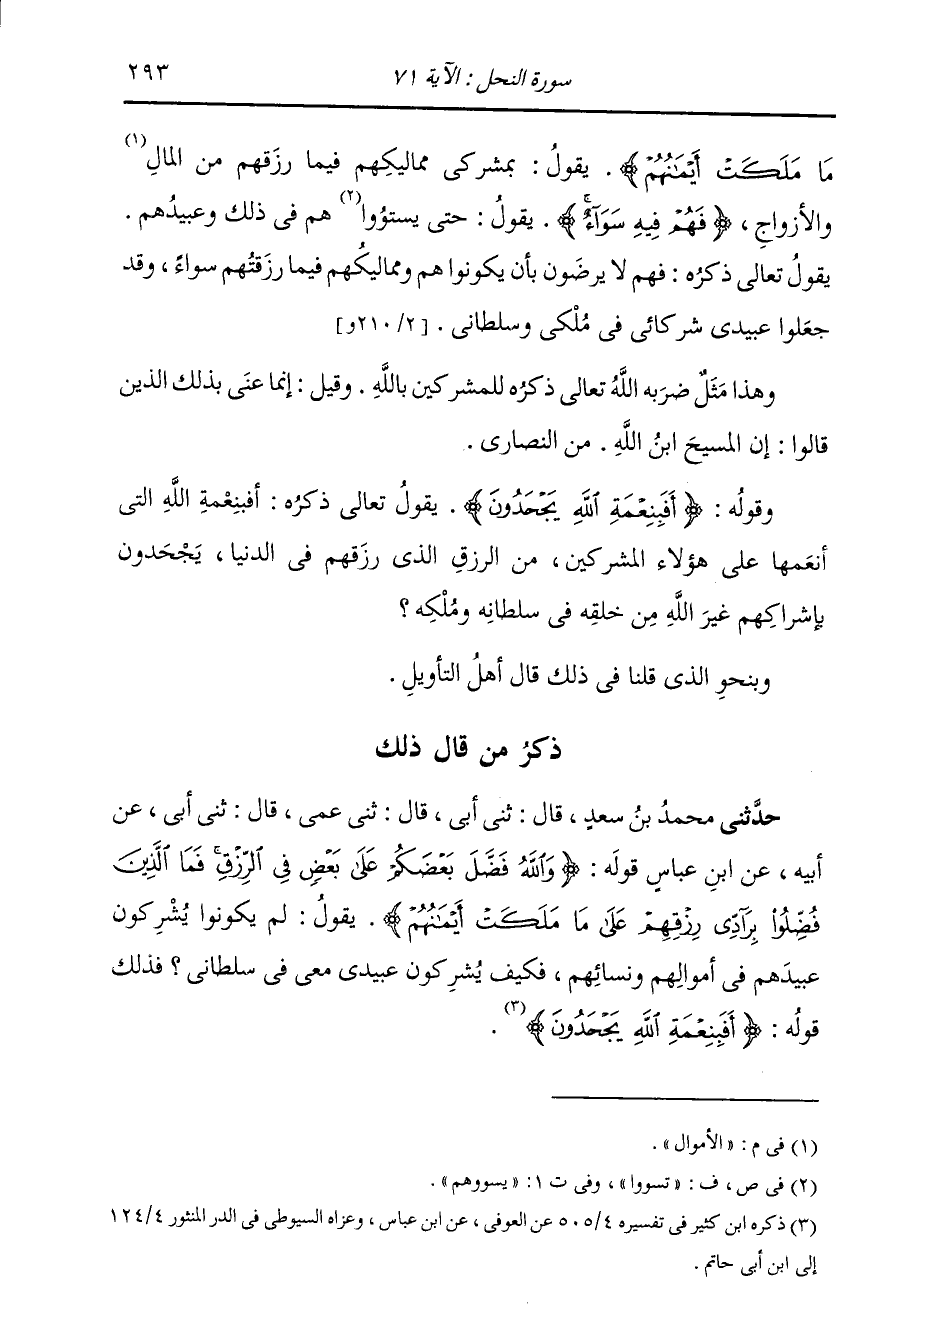 سورة النحل : الآية ٧١ ٢٩٣
مَا مَلَكَتْ أَيْمَٰنُهُمْ ﴾ . يقولُ : بمشركى مماليكِهم فيما رزَقهم من المالِ(١)
والأزواجِ ، ﴿ فَهُمْ فِيهِ سَوَآءٌ ﴾ . يقولُ : حتى يستوُوا(٢) هم فى ذلك وعبيدُهم .
يقولُ تعالى ذكرُه : فهم لا يرضَون بأن يكونوا هم ومماليكُهم فيما رزَقتُهم سواءً ، وقد
جعَلوا عبيدى شركائى فى مُلْكى وسلطانى . [٢١٠/٢و]
وهذا مَثَلٌ ضرَبه اللَّهُ تعالى ذكرُه للمشركين باللَّهِ . وقيل : إنما عنَى بذلك الذين
قالوا : إن المسيحَ ابنُ اللَّهِ . من النصارى .
وقولُه : ﴿ أَفَبِنِعْمَةِ ٱللَّهِ يَجْحَدُونَ ﴾ . يقولُ تعالى ذكرُه : أفبنِعْمةِ اللَّهِ التى
أنعَمها على هؤلاء المشركين ، من الرزقِ الذى رزَقهم فى الدنيا ، يَجْحَدون
بإشراكِهم غيرَ اللَّهِ مِن خلقِه فى سلطانِه ومُلْكِه ؟
وبنحوِ الذى قلنا فى ذلك قال أهلُ التأويلِ .
ذكرُ من قال ذلك
حدَّثنى محمدُ بنُ سعدٍ ، قال : ثنى أبى ، قال : ثنى عمى ، قال : ثنى أبى ، عن
أبيه ، عن ابنِ عباسٍ قولَه : ﴿ وَٱللَّهُ فَضَّلَ بَعْضَكُمْ عَلَىٰ بَعْضٍ فِى ٱلرِّزْقِ ۚ فَمَا ٱلَّذِينَ
فُضِّلُوا۟ بِرَآدِّى رِزْقِهِمْ عَلَىٰ مَا مَلَكَتْ أَيْمَٰنُهُمْ ﴾ . يقولُ : لم يكونوا يُشْرِكون
عبيدَهم فى أموالِهم ونسائِهم ، فكيف يُشرِكون عبيدى معى فى سلطانى ؟ فذلك
قولُه : ﴿ أَفَبِنِعْمَةِ ٱللَّهِ يَجْحَدُونَ ﴾(٣) .
(١) فى م : « الأموال » .
(٢) فى ص ، ف : « تسووا » ، وفى ت ١ : « يسووهم » .
(٣) ذكره ابن كثير فى تفسيره ٥٠٥/٤ عن العوفى ، عن ابن عباس ، وعزاه السيوطى فى الدر المنثور ١٢٤/٤
إلى ابن أبى حاتم .